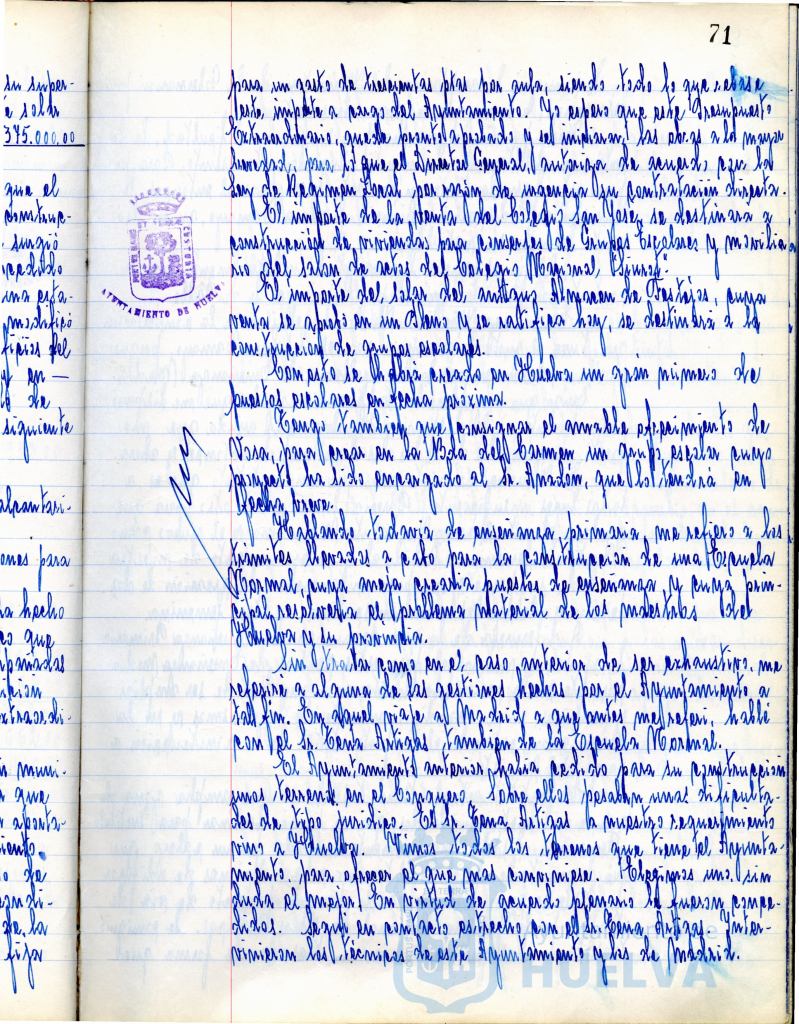 71
su super-
e solar
375.000,00
que el
construc-
surgió
cedido
una esta-
modificó
ficios del
y en —
de
siguiente
alcantari-
ones para
ha hecho
co que
ición
extraordi-
muni-
que
aporta-
iento.
de
de la
fija
para un gasto de trescientas ptas por aula, siendo todo lo que rebase
este importe a cargo del Ayuntamiento. Yo espero que este Presupuesto
Extraordinario, quede pronto aprobado y se iniciaran las obras a la mayor
brevedad, para lo que el Director General, autoriza de acuerdo con la
Ley de Regimen Local por razón de urgencia su contratación directa.
El importe de la venta del Colegio San José se destinara a
construcción de viviendas para conserjes de Grupos Escolares y mobilia
rio del salón de actos del Colegio Nacional
El importe del solar del antiguo Almacen de Festejos, cuya
venta se aprobó en un Pleno y se ratifica hoy, se destinará a la
construccion de grupos escolares.
Con esto se habrá creado en Huelva un gran número de
puestos escolares en fecha próxima.
Tengo tambien que consignar el amable ofrecimiento de
para crear en la del Carmen un grupo escolar cuyo
proyecto ha sido encargado al Sr. que lo tendrá en
fecha breve.
Hablando todavia de enseñanza primaria, me refiero a los
trámites llevados a cabo para la construcción de una Escuela
Normal, cuya aneja crearia puestos de enseñanza y cuya prin-
cipal resolveria el problema material de los maestros de
Huelva y su provincia.
Sin tratar como en el caso anterior de ser exhaustivo, me
referire a alguna de las gestiones hechas por el Ayuntamiento a
tal fin. En aquel viaje a Madrid, a que antes me referi, hablé
con el Sr. Tena Artigas tambien de la Escuela Normal.
El Ayuntamiento anterior habia cedido para su construccion
unos terrenos en el Conquero. Sobre ellos pesaban unas dificulta-
des de tipo juridico. El Sr. Tena Artigas a nuestro requerimiento
vino a Huelva. Vimos todos los terrenos que tiene el Ayunta-
miento para ofrecer el que mas conviniese. Elegimos uno, sin
duda el mejor. En virtud de acuerdo plenario le fueron conce-
didos. Segui en contacto estrecho con el Sr. Tena Artigas. Inter-
vinieron los técnicos de este Ayuntamiento y los de Madrid.
AYUNTAMIENTO DE HUELVA
HUELVA